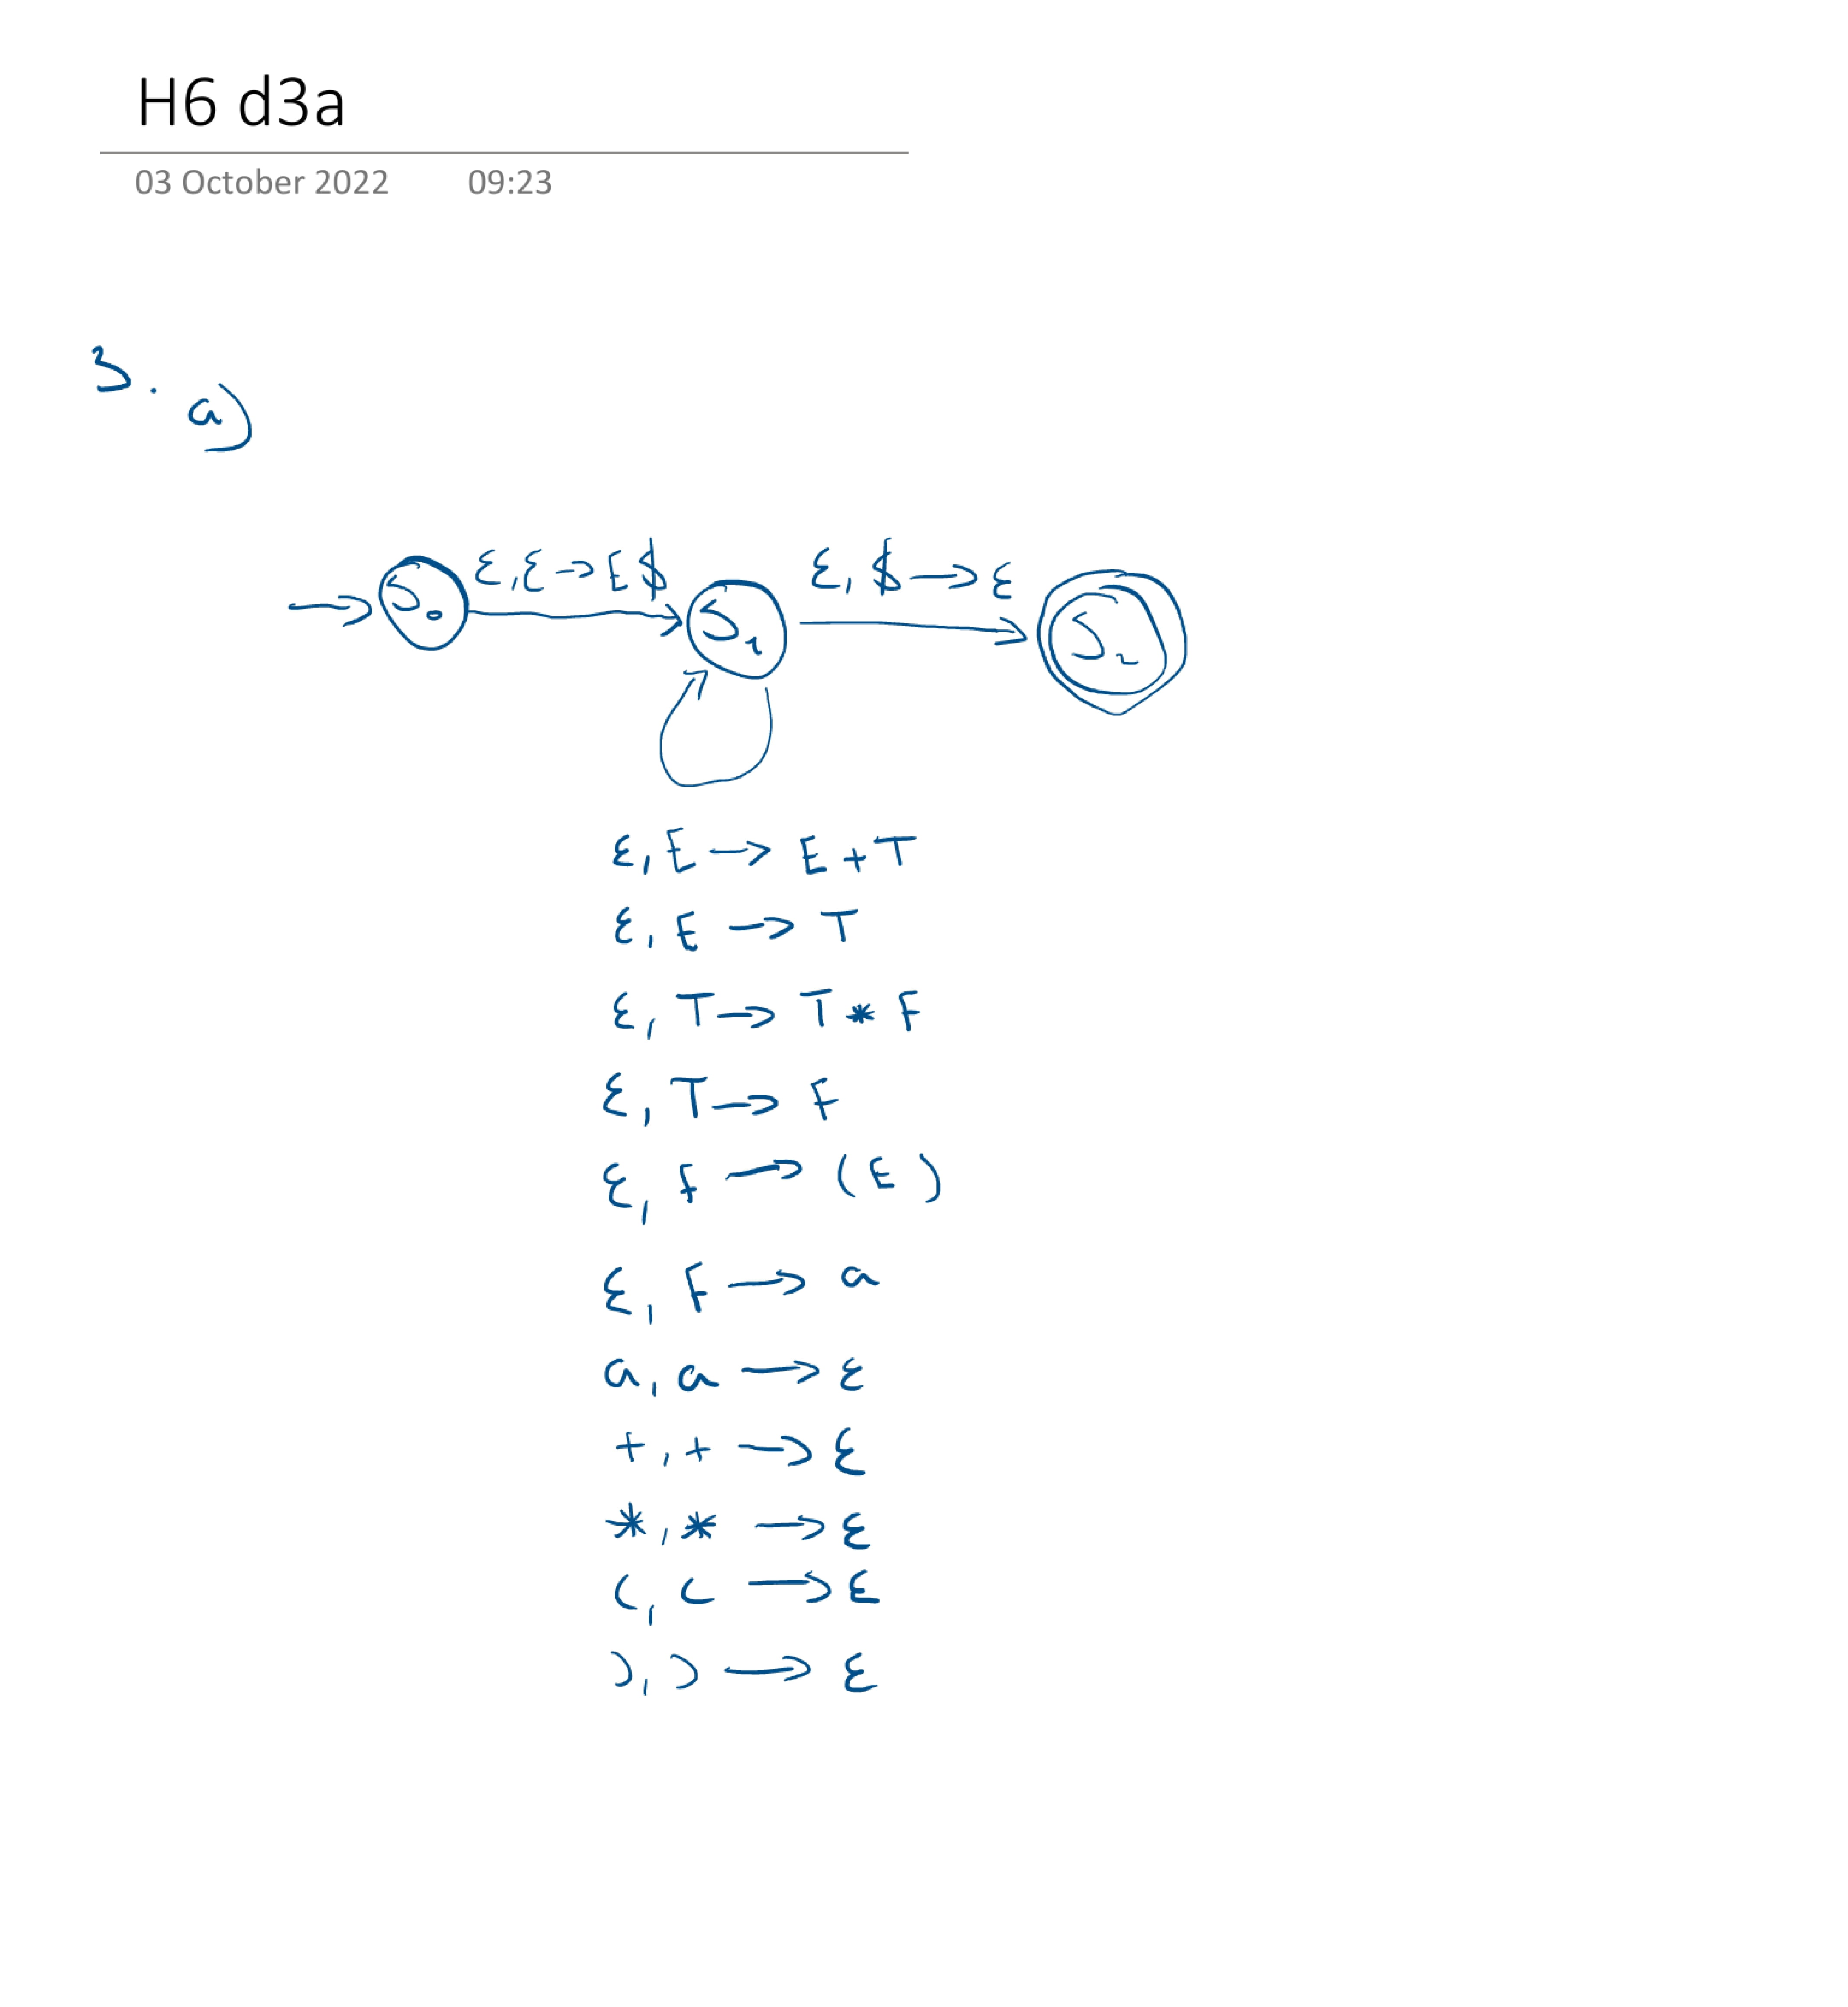 H6 d3a
03 October 2022 09:23
3.
a)
ε, ε → E$
ε, $ → ε
S₀
S₁
S₂
ε, E → E+T
ε, E → T
ε, T → T * F
ε, T → F
ε, F → (E)
ε, F → a
a, a → ε
+, + → ε
*, * → ε
(, ( → ε
), ) → ε